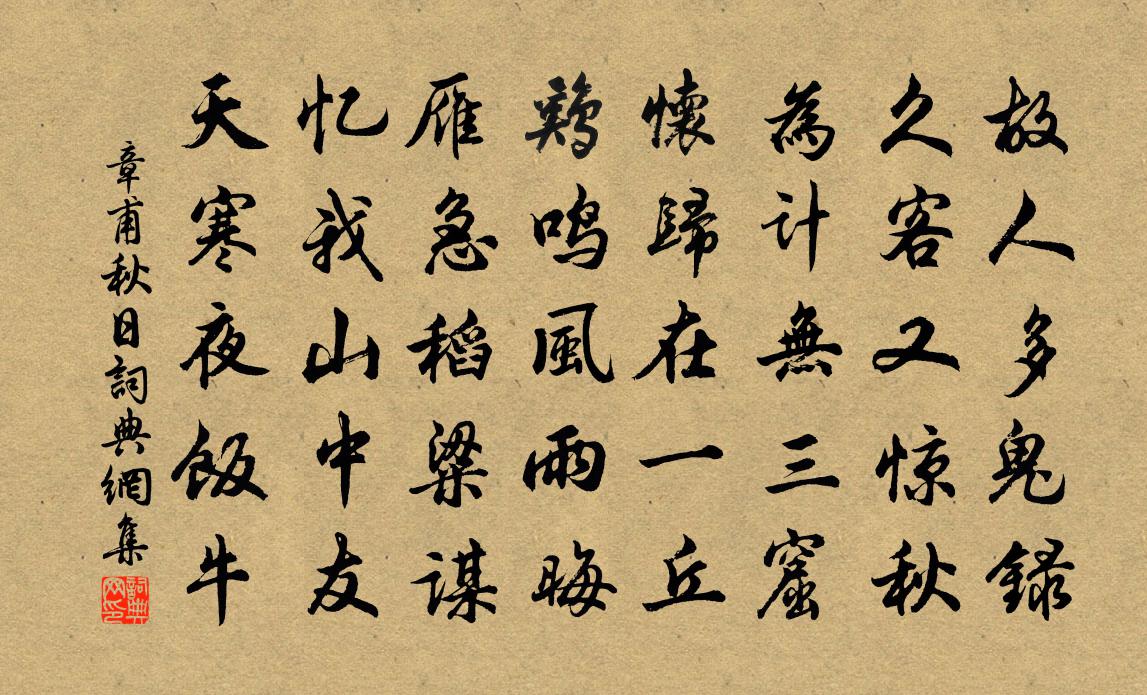 故人多鬼録
久客又惊秋
為計無三窟
懷歸在一丘
鷄鳴風雨晦
雁急稻粱謀
忆我山中友
天寒夜飯牛
章甫秋日詞典網集
詞典网印